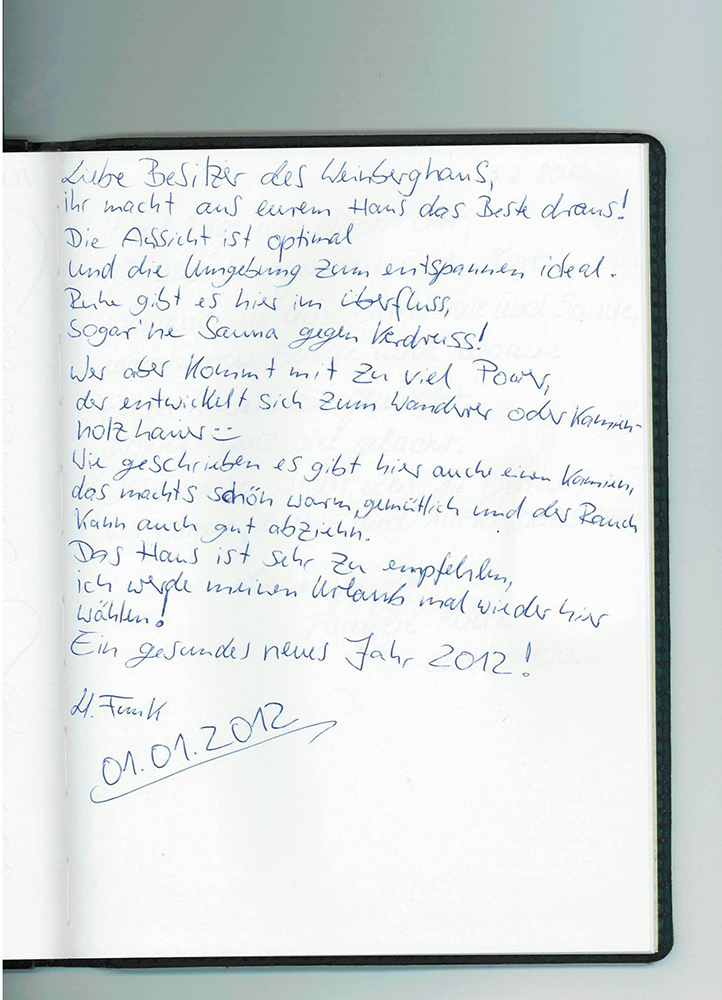 Liebe Besitzer des Weinberghaus,
ihr macht aus eurem Haus das Beste draus!
Die Aussicht ist optimal
und die Umgebung zum entspannen ideal.
Ruhe gibt es hier im überfluss,
sogar 'ne Sauna gegen Verdruss!
Wer aber kommt mit zu viel Power,
der entwickelt sich zum Wanderer oder Kamien-
holzhauer
Wie geschrieben es gibt hier auch einen Kamien,
das machts schön warm, gemütlich und der Rauch
kann auch gut abziehn.
Das Haus ist sehr zu empfehlen,
ich werde meinen Urlaub mal wieder hier
wählen!
Ein gesundes neues Jahr 2012!
Funk
01.01.2012